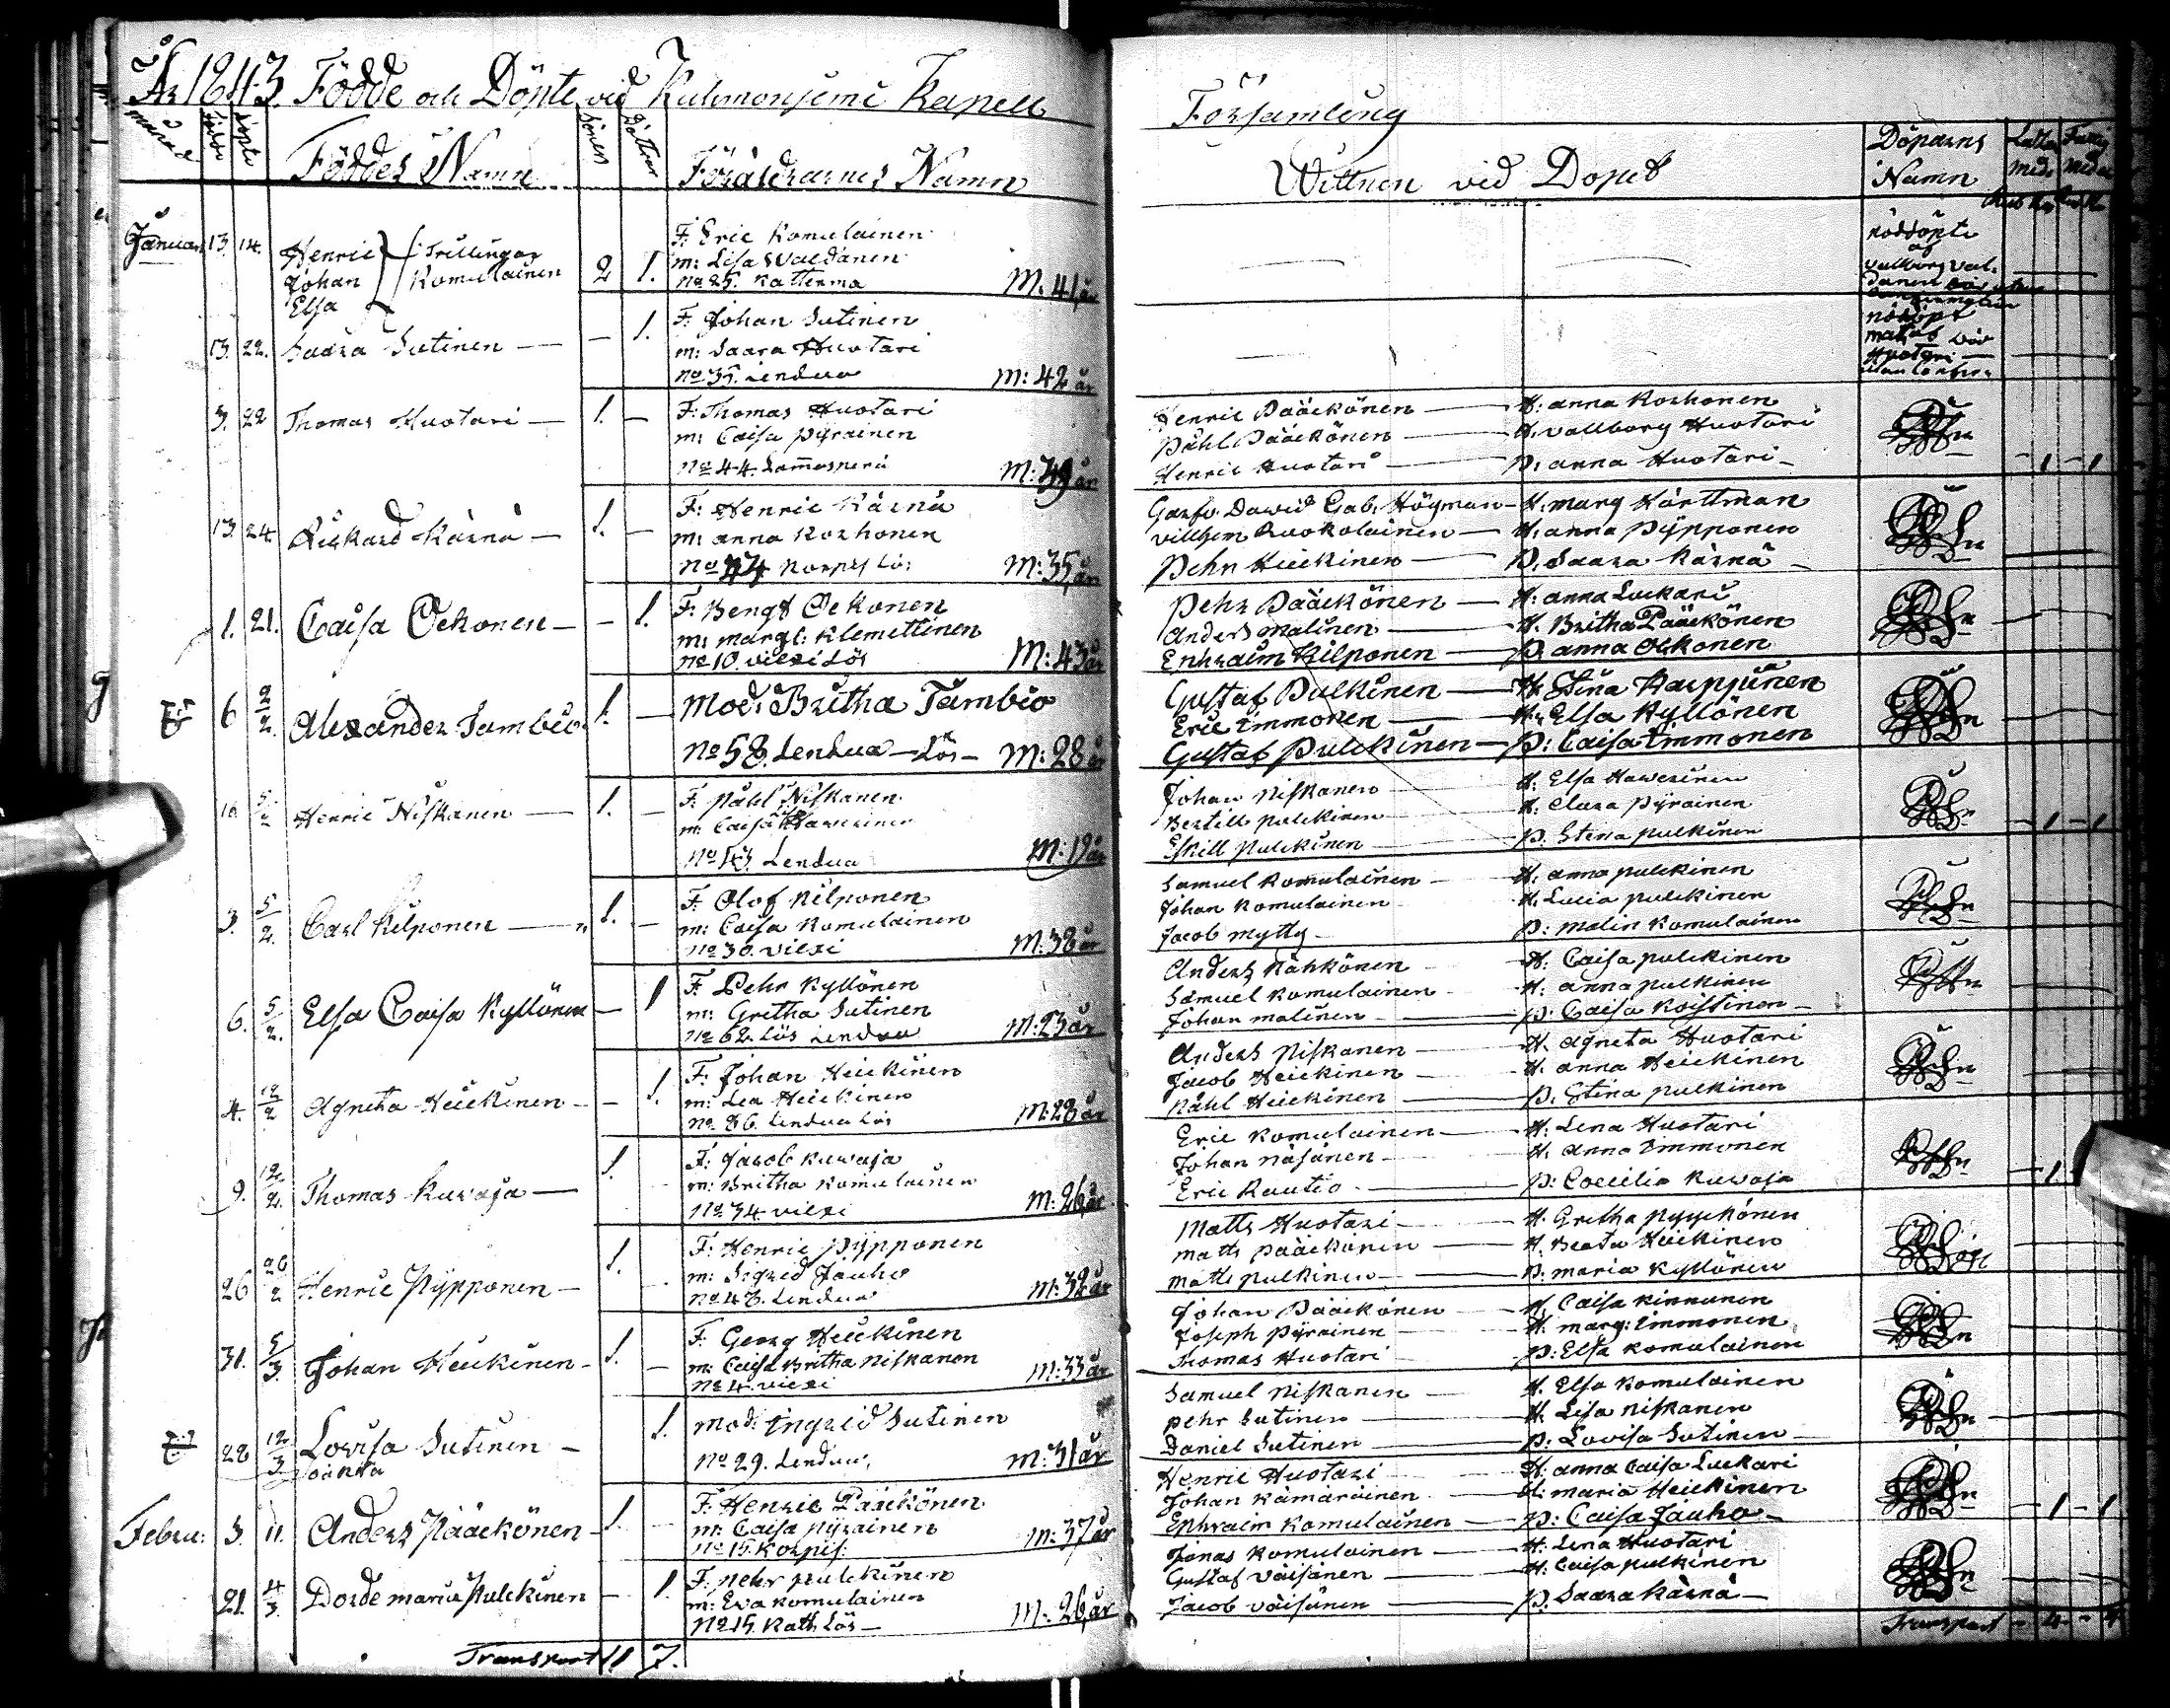 År 1843. Födde och Döpte vid Kuhmoniemi Kapell
Församling
månad
födde
döpte
Föddes Namn
Söner
Döttrar
Föräldrarnes Namn
Wittnen vid Dopet
Döparns Namn
Januari 13. 14. Henric Johan Elsa Trillingar Komulainen 2 1.
F. Eric Komulainen
m: Lisa Waldanen
No 25. Katterma M. 41 år
nöddöpte af
13. 22. Saara Sutinen — — 1.
F. Johan Sutinen
m: Saara Huotari
No 35. Lendua M: 42 år
nödöpt
Huotari
3. 22 Thomas Huotari — 1. —
F: Thomas Huotari
m: Caisa Pyrainen
No 44. Lammasperä
Henric Pääckönen — H: anna Korhonen
Påhl Pääckönen — H. vallborg Huotari
Henric Huotari — P. anna Huotari
- 1 - 1
13. 24. Rickard Kärnä — 1. —
F: Henric Kärnä
m: anna Korhonen
M: 35 år
Dawid Gab. Högman — H. marg Hårttman
villhem Ruokolainen — H. anna Pypponen
Pehr Heickinen — P. Saara Kärnä
1. 21. Caisa Oekonen — — 1.
F. Bengt Oekonen
m: margt: Klemettinen
No 10. viexi Lös M: 43 år
Pehr Pääckönen — H: anna Luckari
Anders malinen — H. Britha Pääckönen
Ephraim Kilponen — P. anna Oekonen
6 2/2. Alexander Tambio 1. —
Mod: Britha Tambio
No 58. Lendua — Lös — M: 28 år
Gustaf Pulkinen — H. Stina Karppinen
Eric Immonen — H. Elsa Kyllönen
Gustaf Pulckinen — P: Caisa Immonen
10 5/2 Henric Niskanen — 1. —
F. Påhl Niskanen
m: Caisa Hawerinen
No 43. Lendua M: 19 år
Johan Niskanen — H. Elsa Hawerinen
Bertill Pulckinen — H. Clara Pyrainen
Eskill Pulckinen — P. Stina Pulkinen
- 1 - 1
3. 5/2. Carl Kilponen — 1. —
F. Olof Kilponen
m: Caisa Komulainen
No 30. viexi M: 38 år
Samuel Komulainen — H. anna Pulckinen
Johan Komulainen — H. Lucia Pulckinen
Jacob Mytty — P: Malin Komulainen
6. 5/2. Elsa Caisa Kyllönen — 1
F. Pehr Kyllönen
m: Gretha Sutinen
No 62. Lös Lendua M: 23 år
Anders Nähkönen — H. Caisa Pulckinen
Samuel Komulainen — H. anna Pulkinen
Johan malinen — P: Caisa Koistinen
4. 12/2 Agneta Heickinen — — 1.
F: Johan Heickinen
m: Lea Heickinen
No 86. Lendua Lös M: 28 år
Anders Niskanen — H. Agneta Huotari
Jacob Heickinen — H. anna Heickinen
Påhl Heickinen — P. Stina Pulkinen
9. 12/2. Thomas Kuwaja — 1.
F: Jacob Kuwaja
m: Britha Komulainen
No 34. viexi M: 26 år
Eric Komulainen — H: Lena Huotari
Johan Näsänen — H. Anna Immonen
Eric Rautio — P: Coecilia Kuwaja
- 1
26 26/2 Henric Pypponen — 1.
F: Henric Pypponen
m: Sigrid Jauho
No 43. Lendua M: 32 år
Matts Huotari — H. Gretha Pyyckönen
Matts Pääckönen — H. Beata Heickinen
Matts Pulkinen — P. maria Kyllönen
31. 5/3. Johan Heickinen — 1. —
F. Georg Heickinen
m: Caisa Britha Niskanen
No 4. viexi M: 33 år
Johan Pääckönen — H. Caisa Kinnunen
Joseph Pyrainen — H. marg: Immonen
Thomas Huotari — P: Elsa Komulainen
28 12/3 Lovisa Sutinen — 1.
mod: Ingrid Sutinen
No 29. Lendua M: 31 år
Samuel Niskanen — H. Elsa Komulainen
Pehr Sutinen — H. Lisa Niskanen
Daniel Sutinen — P: Lovisa Sutinen
Febru: 3. 11. Anders Pääckönen — 1.
F. Henric Pääckönen
m: Caisa Pyrainen
No 15. Korpis: M: 37 år
Henric Huotari — H: anna Caisa Luckari
Johan Kämäräinen — H: maria Heickinen
Ephraim Komulainen — P: Caisa Jauho
- 1 - 1
21. 4/3. Dorde maria Pulckinen — 1.
F: Pehr Pulckinen
m: Eva Komulainen
No 15. Kath Lös — M: 26 år
Jonas Komulainen — H: Lena Huotari
Gustaf Väisänen — H: Caisa Pulkinen
Jacob Väisänen — P. Saara Kärnä
Transport 11 7.
Transport - 4 - 4